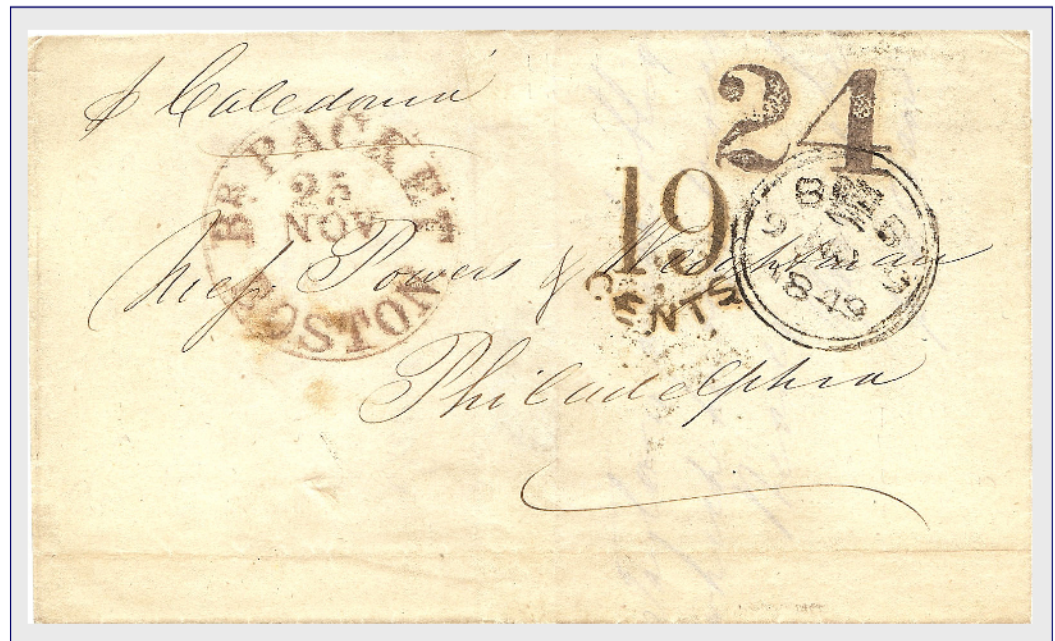 p Caledonia
24
BR PACKET
25
NOV
BOSTON
19
CENTS
1849
Messrs Powers & Weightman
Philadelphia